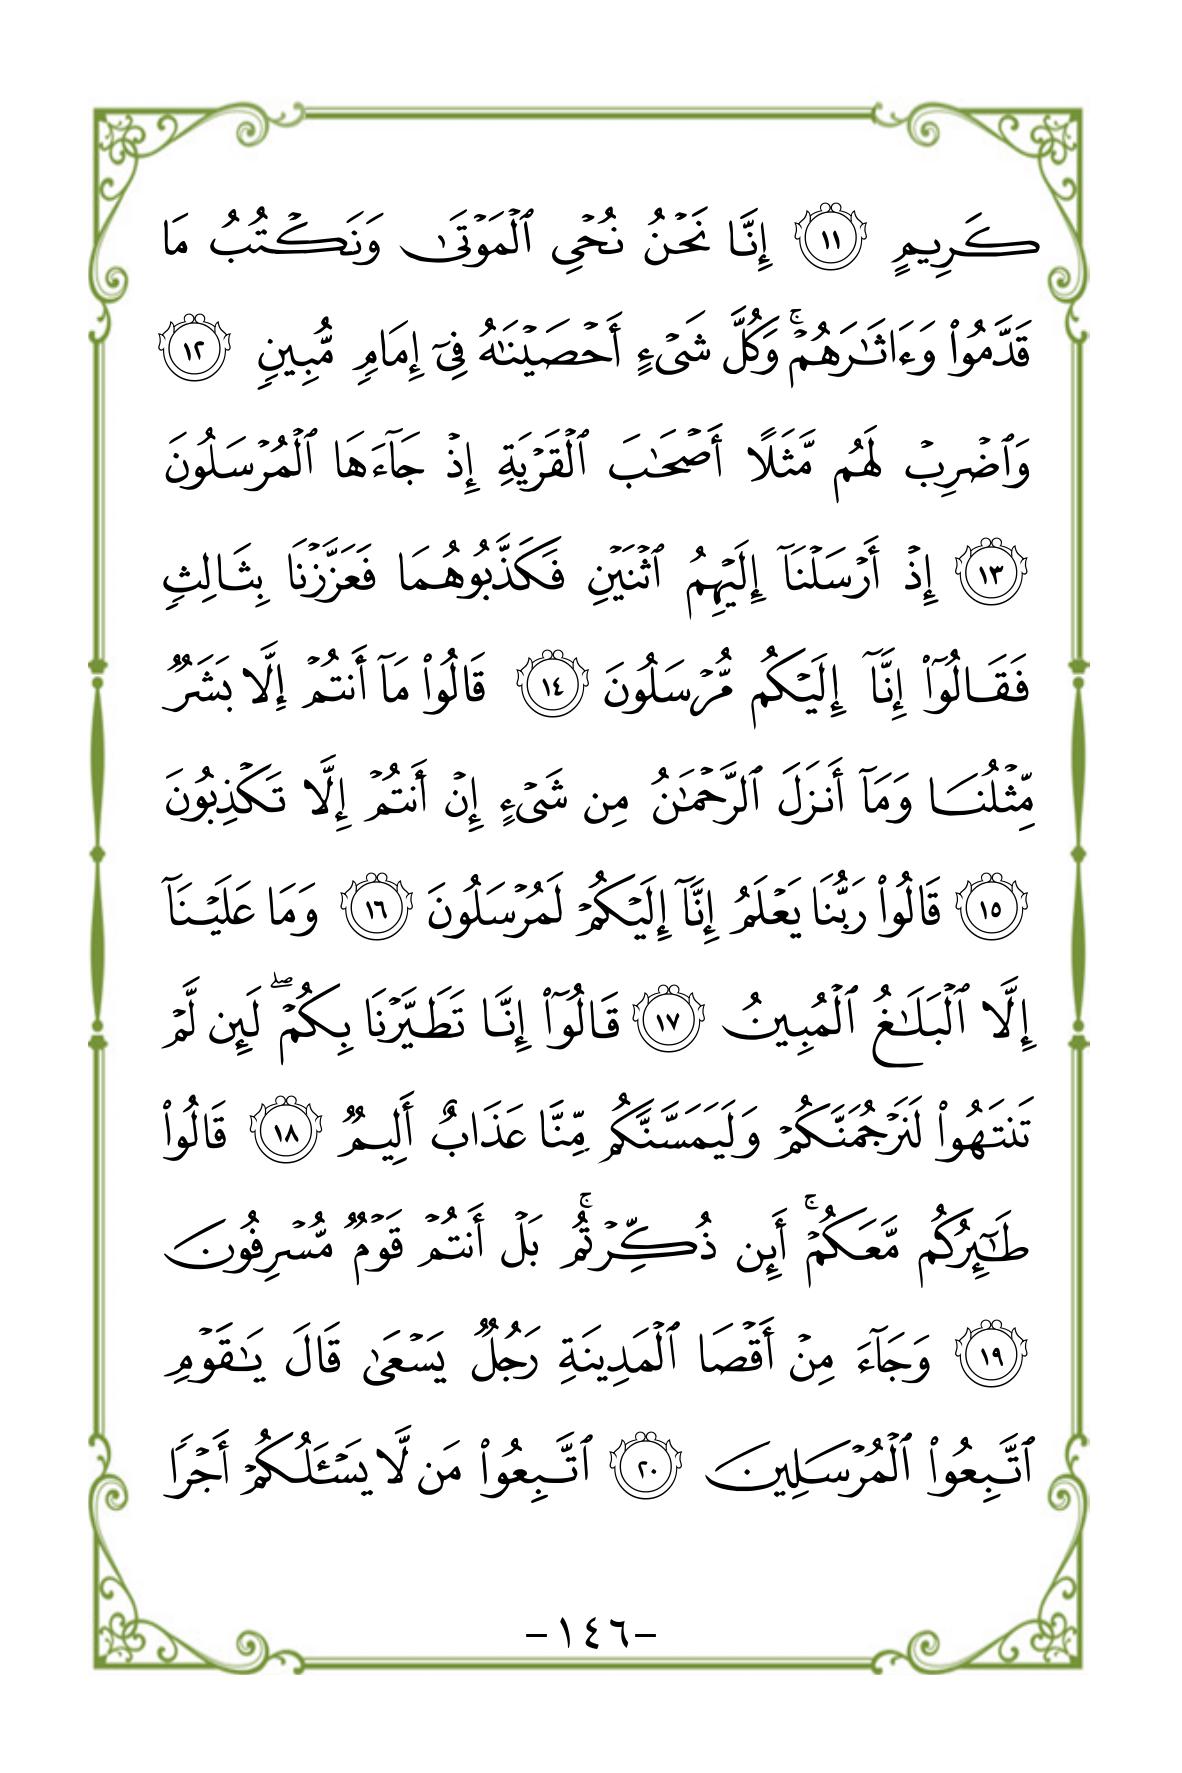 كَرِيمٍ ١١ إِنَّا نَحۡنُ نُحۡيِ ٱلۡمَوۡتَىٰ وَنَكۡتُبُ مَا
قَدَّمُواْ وَءَاثَٰرَهُمۡۚ وَكُلَّ شَيۡءٍ أَحۡصَيۡنَٰهُ فِيٓ إِمَامٖ مُّبِينٖ ١٢
وَٱضۡرِبۡ لَهُم مَّثَلًا أَصۡحَٰبَ ٱلۡقَرۡيَةِ إِذۡ جَآءَهَا ٱلۡمُرۡسَلُونَ
١٣ إِذۡ أَرۡسَلۡنَآ إِلَيۡهِمُ ٱثۡنَيۡنِ فَكَذَّبُوهُمَا فَعَزَّزۡنَا بِثَالِثٖ
فَقَالُوٓاْ إِنَّآ إِلَيۡكُم مُّرۡسَلُونَ ١٤ قَالُواْ مَآ أَنتُمۡ إِلَّا بَشَرٞ
مِّثۡلُنَا وَمَآ أَنزَلَ ٱلرَّحۡمَٰنُ مِن شَيۡءٍ إِنۡ أَنتُمۡ إِلَّا تَكۡذِبُونَ
١٥ قَالُواْ رَبُّنَا يَعۡلَمُ إِنَّآ إِلَيۡكُمۡ لَمُرۡسَلُونَ ١٦ وَمَا عَلَيۡنَآ
إِلَّا ٱلۡبَلَٰغُ ٱلۡمُبِينُ ١٧ قَالُوٓاْ إِنَّا تَطَيَّرۡنَا بِكُمۡۖ لَئِن لَّمۡ
تَنتَهُواْ لَنَرۡجُمَنَّكُمۡ وَلَيَمَسَّنَّكُم مِّنَّا عَذَابٌ أَلِيمٞ ١٨ قَالُواْ
طَٰٓئِرُكُم مَّعَكُمۡۚ أَئِن ذُكِّرۡتُمۚ بَلۡ أَنتُمۡ قَوۡمٞ مُّسۡرِفُونَ
١٩ وَجَآءَ مِنۡ أَقۡصَا ٱلۡمَدِينَةِ رَجُلٞ يَسۡعَىٰ قَالَ يَٰقَوۡمِ
ٱتَّبِعُواْ ٱلۡمُرۡسَلِينَ ٢٠ ٱتَّبِعُواْ مَن لَّا يَسۡـَٔلُكُمۡ أَجۡرٗا
-١٤٦-